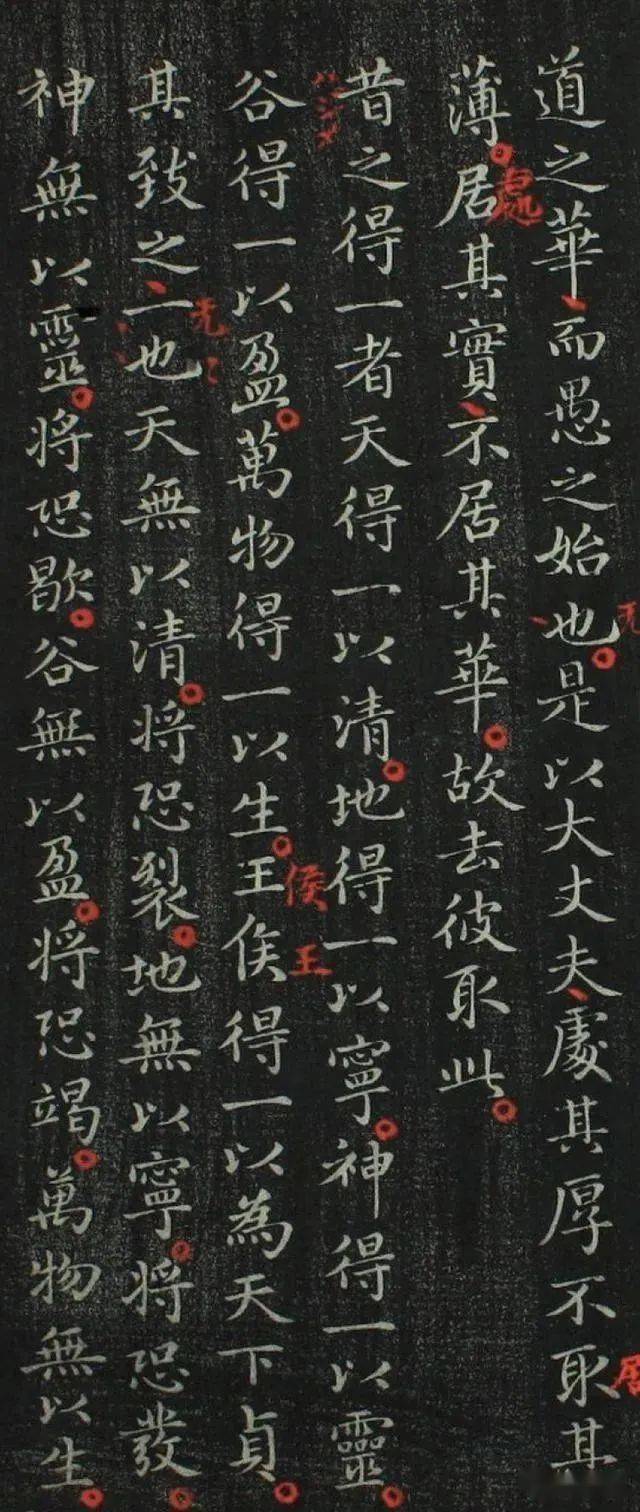 道之華而愚之始也是以大丈夫處其厚不取其
薄居其實不居其華故去彼取此
昔之得一者天得一以清地得一以寧神得一以靈
谷得一以盈萬物得一以生王侯得一以為天下貞
其致之一也天無以清將恐裂地無以寧將恐發
神無以靈將恐歇谷無以盈將恐竭萬物無以生
无
居
處
侯
王
无